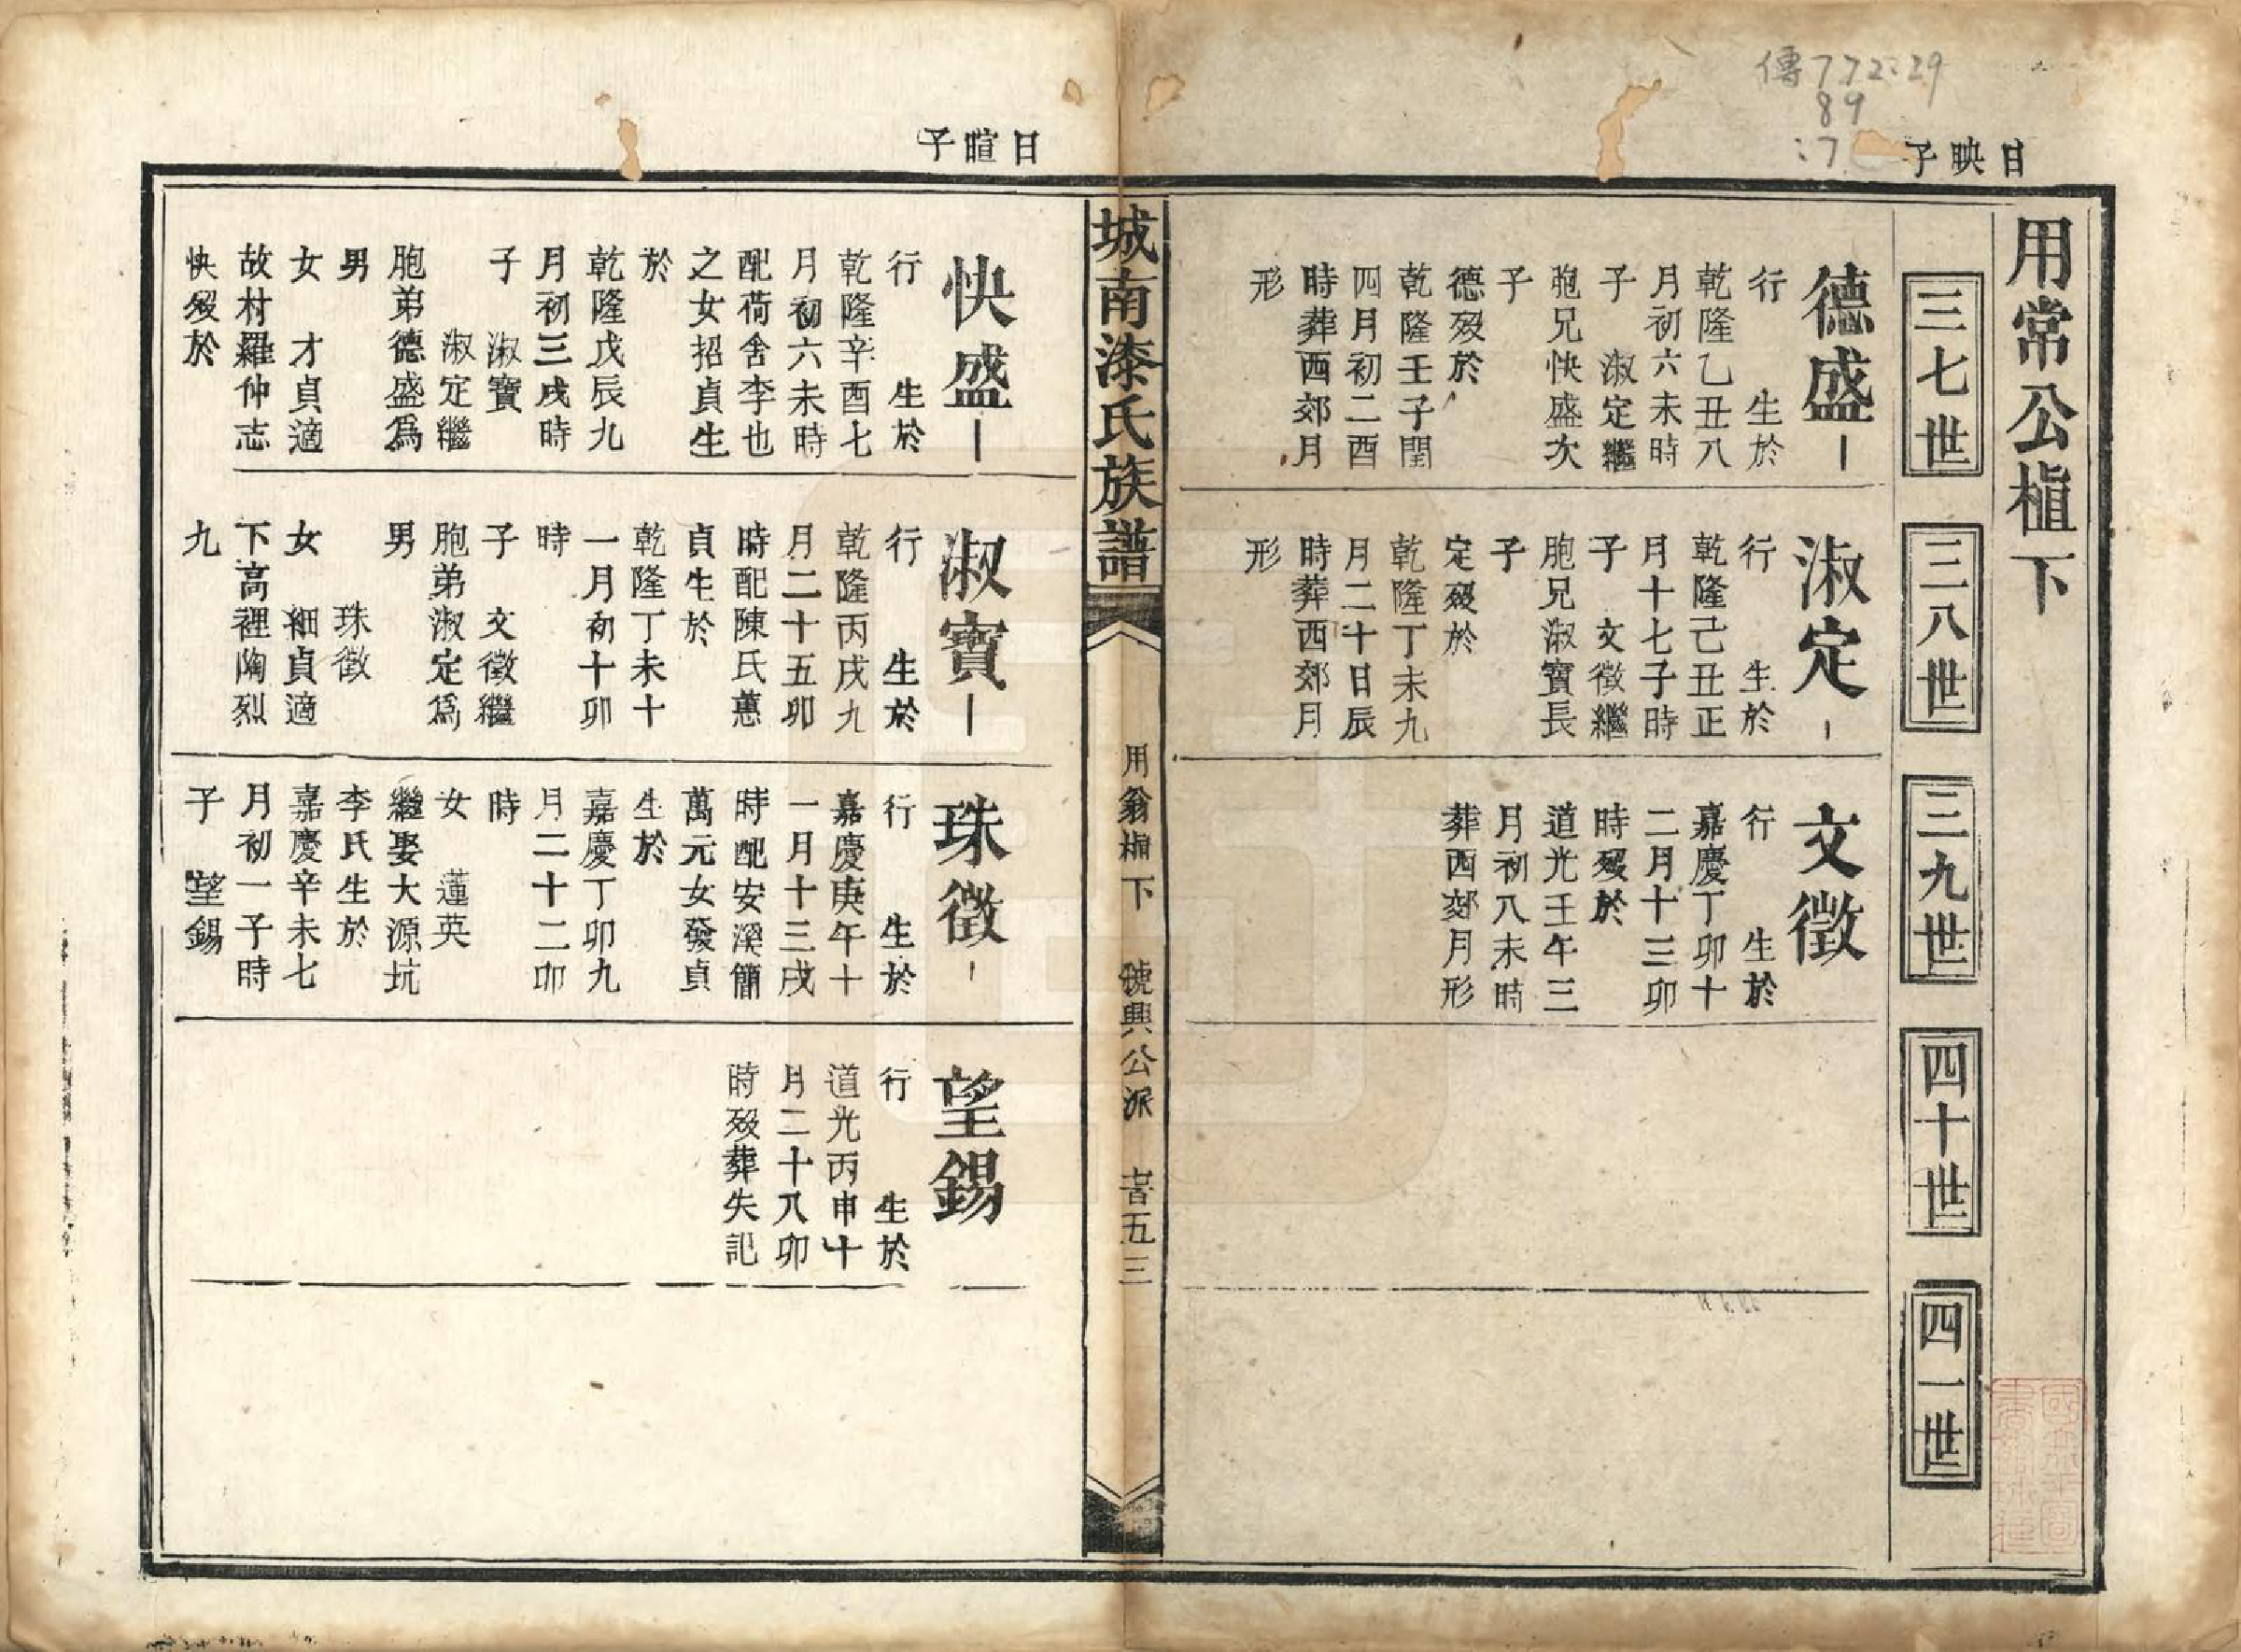 傳772:29
89
:7
日映子
用常公植下
三七世
三八世
三九世
四十世
四一世
德盛
行　生於
乾隆乙丑八
月初六未時
子　淑定繼
胞兄快盛次
子
德歿於
乾隆壬子閏
四月初二酉
時葬西郊月
形
淑定
行　生於
乾隆己丑正
月十七子時
子　文徵繼
胞兄淑寶長
子
定歿於
乾隆丁未九
月二十日辰
時葬西郊月
形
文徵
行　生於
嘉慶丁卯十
二月十三卯
時歿於
道光壬午三
月初八未時
葬西郊月形
城南漆氏族譜
用翁植下　號興公派　五三
日暄子
快盛
行　生於
乾隆辛酉七
月初六未時
配荷舍李也
之女招貞生
於
乾隆戊辰九
月初三戌時
子　淑寶
淑定繼
胞弟德盛爲
男
女　才貞適
故村羅仲志
快歿於
淑寶
行　生於
乾隆丙戌九
月二十五卯
時配陳氏蕙
貞生於
乾隆丁未十
一月初十卯
時
子　文徵繼
胞弟淑定爲
男
珠徵
女　細貞適
下高裡陶烈
九
珠徵
行　生於
嘉慶庚午十
一月十三戌
時配安溪簡
萬元女發貞
生於
嘉慶丁卯九
月二十二卯
時
女　蓮英
繼娶大源坑
李氏生於
嘉慶辛未七
月初一子時
子　望錫
望錫
行　生於
道光丙申十
月二十八卯
時歿葬失記